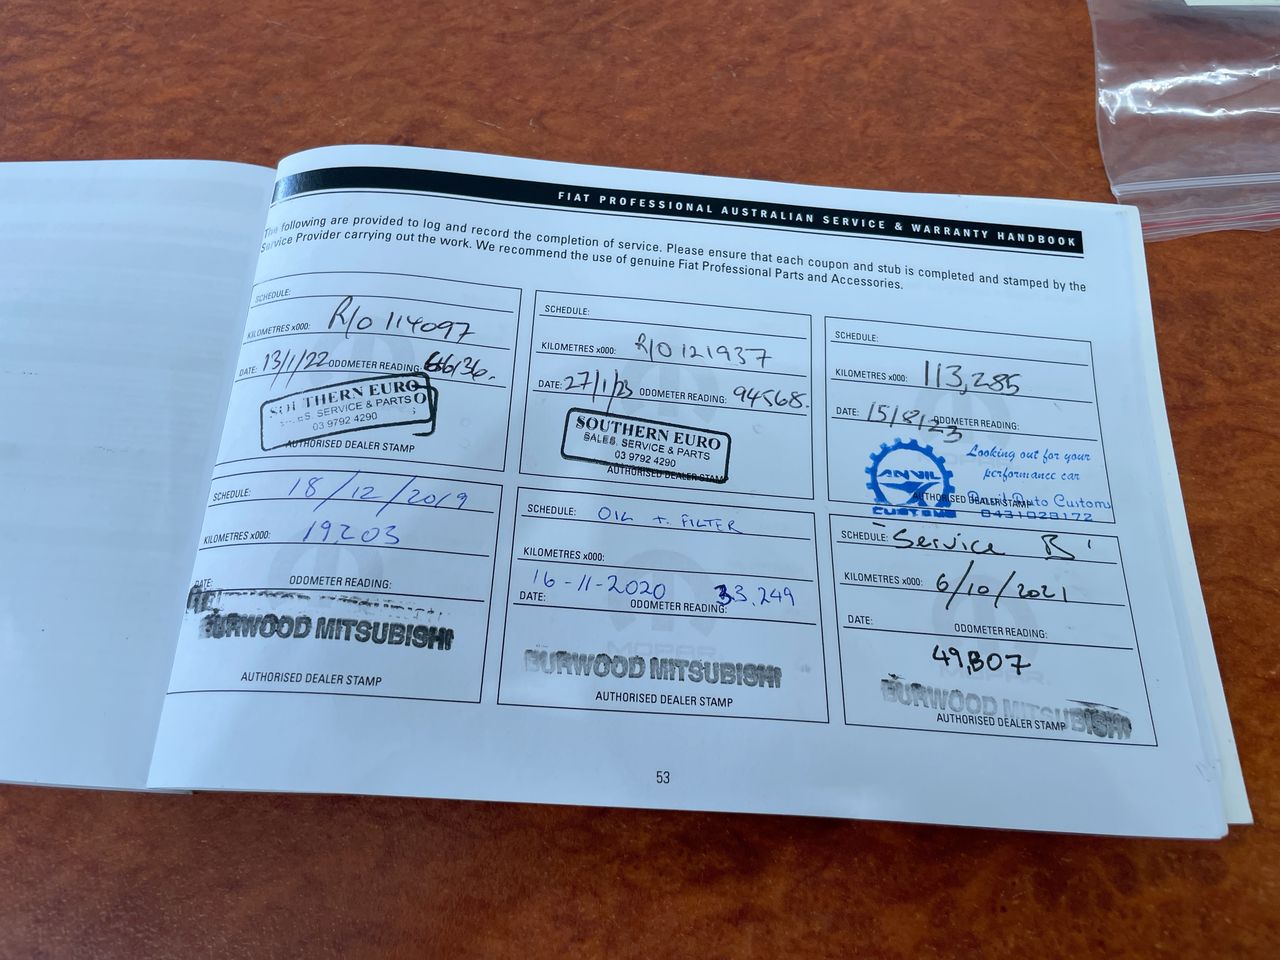 FIAT PROFESSIONAL AUSTRALIAN SERVICE & WARRANTY HANDBOOK
The following are provided to log and record the completion of service. Please ensure that each coupon and stub is completed and stamped by the
Service Provider carrying out the work. We recommend the use of genuine Fiat Professional Parts and Accessories.
SCHEDULE:
KILOMETRES x000: R/O 114097
DATE: 13/1/22 ODOMETER READING: 66136.
SOUTHERN EURO
SALES, SERVICE & PARTS
03 9792 4290
AUTHORISED DEALER STAMP
SCHEDULE:
KILOMETRES x000: R/O 121937
DATE: 27/1/23 ODOMETER READING: 94568.
SOUTHERN EURO
SALES, SERVICE & PARTS
03 9792 4290
AUTHORISED DEALER STAMP
SCHEDULE:
KILOMETRES x000: 113,285
DATE: 15/8/23 ODOMETER READING:
Looking out for your
performance car
ANVIL
CUSTOMS
AUTHORISED DEALER STAMP
Anvil Auto Customs
0431029172
SCHEDULE: 18/12/2019
KILOMETRES x000: 19,203
DATE: ODOMETER READING:
BURWOOD MITSUBISHI
AUTHORISED DEALER STAMP
SCHEDULE: OIL + FILTER
KILOMETRES x000:
16-11-2020 33,249
DATE: ODOMETER READING:
MOPAR
BURWOOD MITSUBISHI
AUTHORISED DEALER STAMP
SCHEDULE: Service B
KILOMETRES x000: 6/10/2021
DATE: ODOMETER READING:
49,807
MOPAR
BURWOOD MITSUBISHI
AUTHORISED DEALER STAMP
53